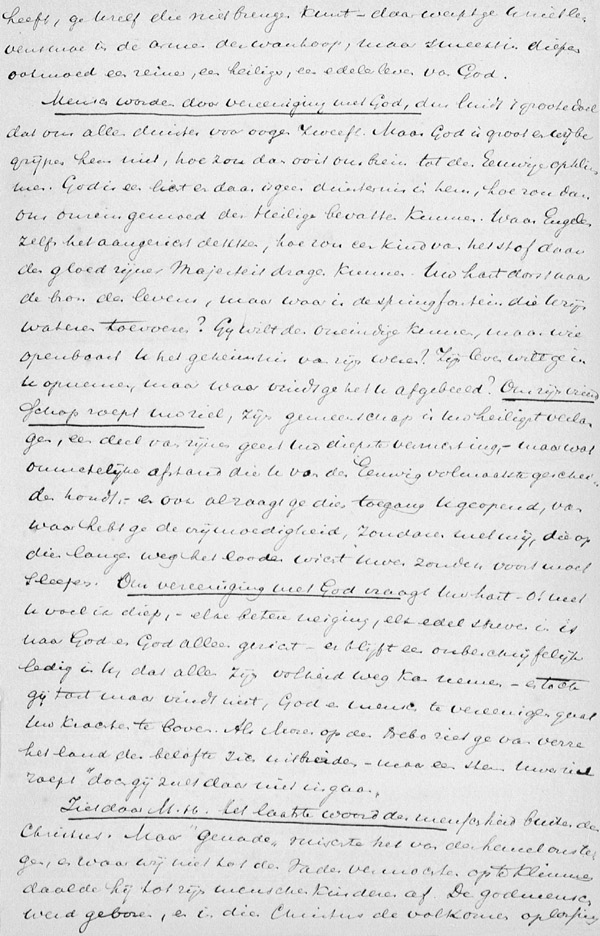 heeft, ge uzelf die niet brengen kunt - daar werpt ge u niet le
vensmoe in de armen der wanhoop, maar smeekt in diepen
ootmoed een reiner, een heiliger, een edeler leven van God.
Mensch worden door vereeniging met God, dus luidt 't groote doel
dat ons allen duister voor oogen zweeft. Maar God is groot en wij be
grijpen hem niet, hoe zou dan ooit ons brein tot den Eeuwige opklim
men. God is een licht en daar is geen duisternis in hem, hoe zou dan
ons onrein gemoed den Heilige bevatten kunnen. Waar Engelen
zelfs het aangezicht dekken, hoe zou een kind van het stof daar
den gloed zijner Majesteit dragen kunnen. Uw hart dorst naar
de bron des levens, maar waar is de springfontein die u zijn
wateren toevoere? Gij wilt den oneindige kennen, maar wie
openbaart u het geheimenis van zijn wezen? Zijn leven wilt ge in
u opnemen, maar waar vindt ge het u afgebeeld? Om zijn vriend
schap roept uw ziel, zijn gemeenschap is uw heiligst verlan
gen, een deel van zijnen geest uw diepste verwachting, - maar wat
onmetelijke afstand die u van den Eeuwig volmaakte geschei
den houdt, - en ook al zaagt ge dien toegang u geopend, van
waar hebt ge de vrijmoedigheid, zondaar met mij, die op
dien langen weg het looden wicht uwer zonden voort moet
sleepen. Om vereeniging met God vraagt uw hart - O! met
u voel ik diep, - elke betere neiging, elk edel streven in is
naar God en God alleen gericht - er blijft een onbeschrijfelijk
ledig in u, dat alleen zijn volheid weg kan nemen - en toch
gij tast maar vindt niet, God en mensch te vereenigen gaat
uw krachten te boven. Als Mozes op den Nebo ziet ge van verre
het land der belofte zich uitbreiden - maar een stem in uw ziel
roept "doch gij zult daar niet ingaan"
Ziet daar M. H. het laatste woord der menschheid buiten den
Christus. Maar "Genade" ruischte het van der hemelen ster
gen, en waar wij niet tot den Vader vermochten op te klimmen
daalde hij tot zijn menschenkinderen af. De godmensch
werd geboren, en in dien Christus de volkomen oplossing